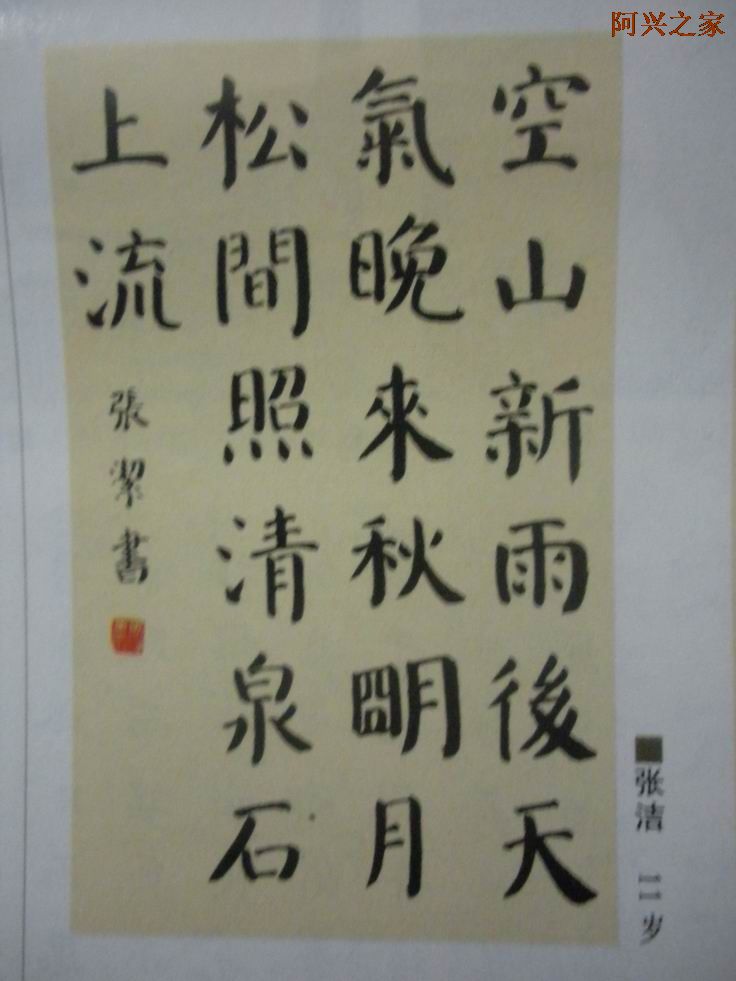 阿兴之家
空山新雨後天
氣晚来秋明月
松間照清泉石
上流
張潔書
张洁 11岁